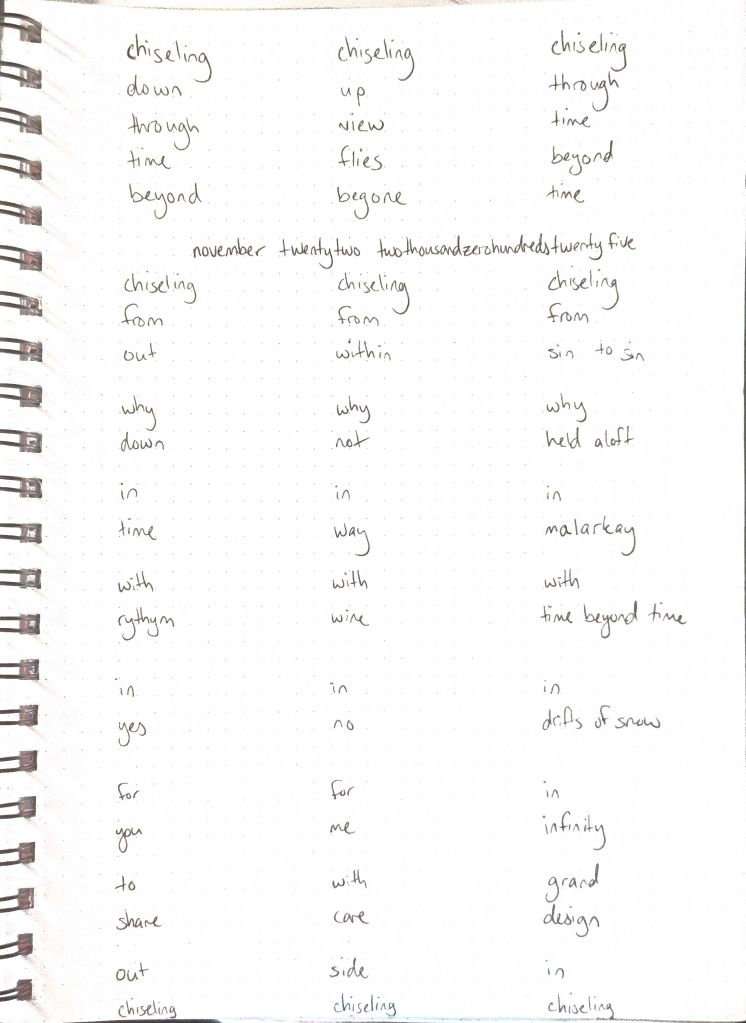 chiseling chiseling chiseling
down up through
through view time
time flies beyond
beyond begone time
november twentytwo twothousandzerohundredstwentyfive
chiseling chiseling chiseling
from from from
out within sin to sin
why why why
down not held aloft
in in in
time way malarkay
with with with
rythym wine time beyond time
in in in
yes no drifts of snow
for for in
you me infinity
to with grand
share care design
out side in
chiseling chiseling chiseling